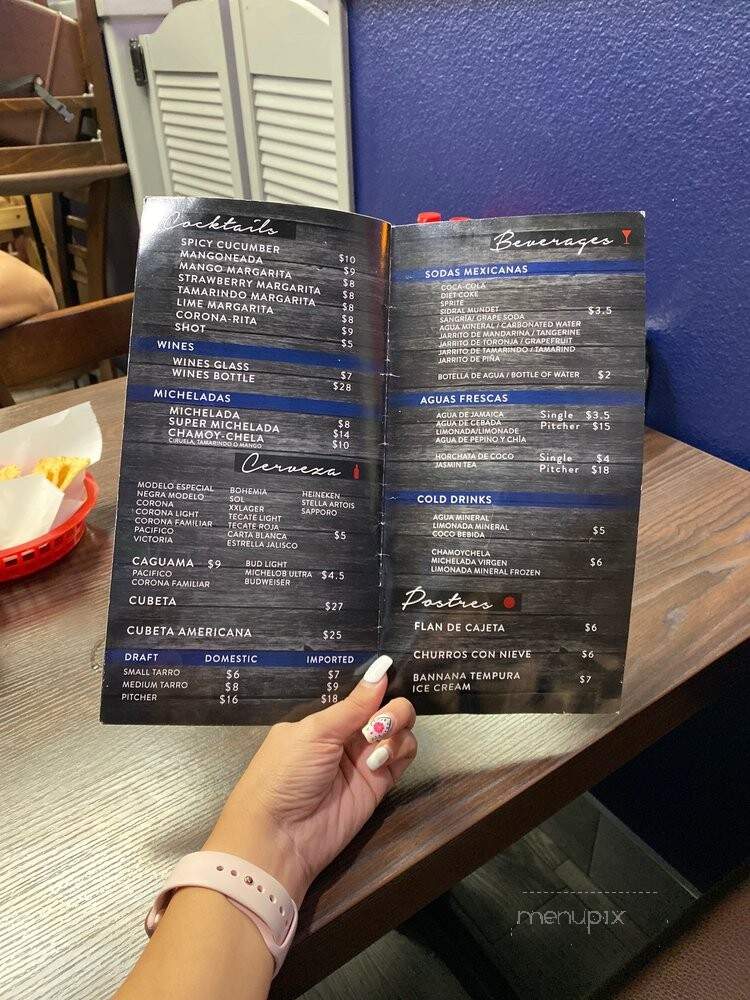 Cocktails
SPICY CUCUMBER $10
MANGONEADA $9
MANGO MARGARITA $8
STRAWBERRY MARGARITA $8
TAMARINDO MARGARITA $8
LIME MARGARITA $8
CORONA-RITA $9
SHOT $5
WINES
WINES GLASS $7
WINES BOTTLE $28
MICHELADAS
MICHELADA $8
SUPER MICHELADA $14
CHAMOY-CHELA $10
CIRUELA, TAMARINDO O MANGO
Cerveza
MODELO ESPECIAL
NEGRA MODELO
CORONA
CORONA LIGHT
CORONA FAMILIAR
PACIFICO
VICTORIA
BOHEMIA
SOL
XXLAGER
TECATE LIGHT
TECATE ROJA
CARTA BLANCA
ESTRELLA JALISCO
HEINEKEN
STELLA ARTOIS
SAPPORO
$5
CAGUAMA $9
PACIFICO
CORONA FAMILIAR
BUD LIGHT
MICHELOB ULTRA $4.5
BUDWEISER
CUBETA $27
CUBETA AMERICANA $25
DRAFT DOMESTIC IMPORTED
SMALL TARRO $6 $7
MEDIUM TARRO $8 $9
PITCHER $16 $18
Beverages
SODAS MEXICANAS
COCA-COLA
DIET COKE
SPRITE
SIDRAL MUNDET $3.5
SANGRÍA/ GRAPE SODA
AGUA MINERAL / CARBONATED WATER
JARRITO DE MANDARINA / TANGERINE
JARRITO DE TORONJA / GRAPEFRUIT
JARRITO DE TAMARINDO / TAMARIND
JARRITO DE PIÑA
BOTELLA DE AGUA / BOTTLE OF WATER $2
AGUAS FRESCAS
AGUA DE JAMAICA Single $3.5
AGUA DE CEBADA Pitcher $15
LIMONADA/LIMONADE
AGUA DE PEPINO Y CHÍA
HORCHATA DE COCO Single $4
JASMIN TEA Pitcher $18
COLD DRINKS
AGUA MINERAL
LIMONADA MINERAL $5
COCO BEBIDA
CHAMOYCHELA
MICHELADA VIRGEN $6
LIMONADA MINERAL FROZEN
Postres
FLAN DE CAJETA $6
CHURROS CON NIEVE $6
BANNANA TEMPURA $7
ICE CREAM
menupix